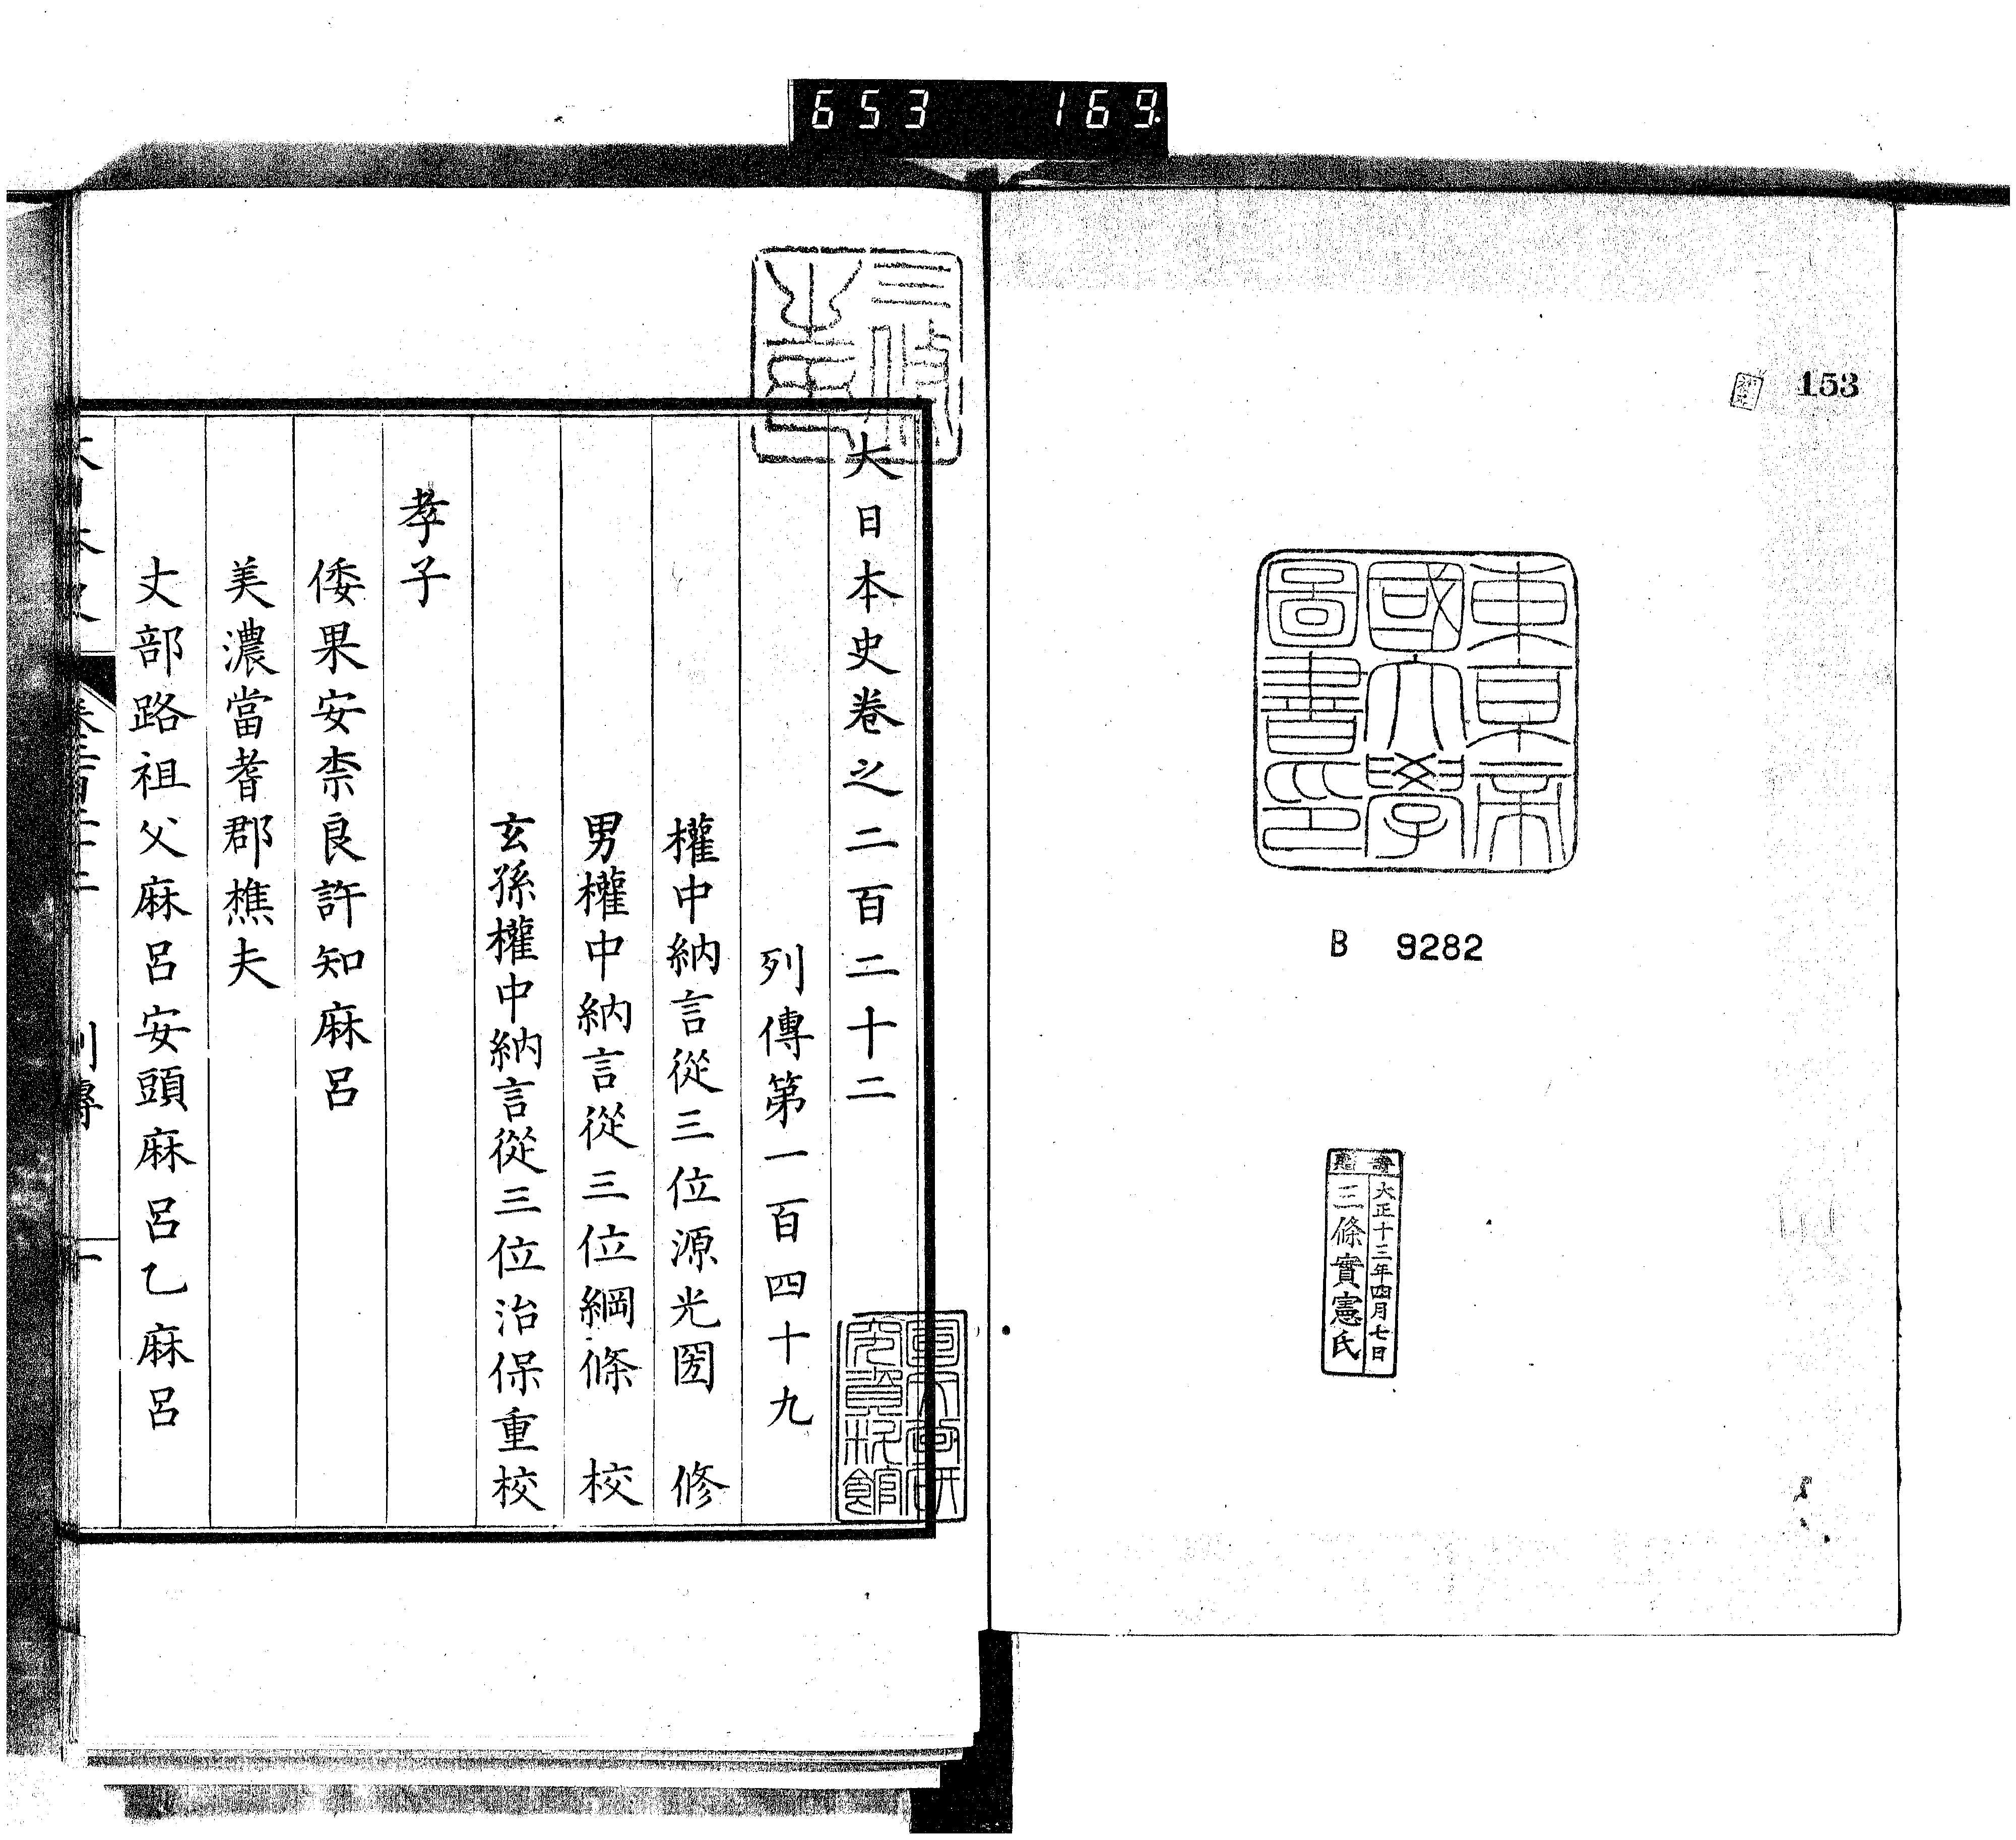 653 169.
153
東京帝
國大學
圖書印
B 9282
寄贈
大正十三年四月七日
三條實憲氏
大日本史卷之二百二十二
列傳第一百四十九
權中納言從三位源光圀 修
男權中納言從三位綱條 校
玄孫權中納言從三位治保重校
孝子
倭果安柰良許知麻呂
美濃當耆郡樵夫
丈部路祖父麻呂安頭麻呂乙麻呂
列傳